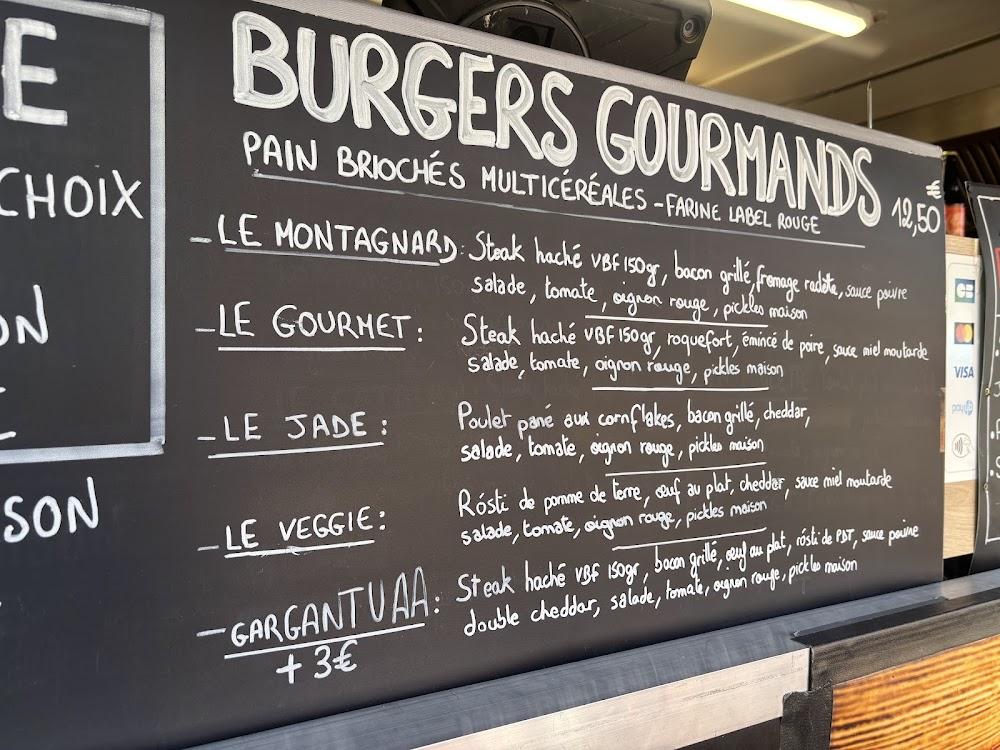 E
CHOIX
ON
SON
BURGERS GOURMANDS
PAIN BRIOCHÉS MULTICÉRÉALES - FARINE LABEL ROUGE
€
12,50
- LE MONTAGNARD: Steak haché VBF 150gr, bacon grillé, fromage raclette, sauce poivre
salade, tomate, oignon rouge, pickles maison
- LE GOURMET: Steak haché VBF 150gr, roquefort, émincé de poire, sauce miel moutarde
salade, tomate, oignon rouge, pickles maison
- LE JADE: Poulet pané aux cornflakes, bacon grillé, cheddar,
salade, tomate, oignon rouge, pickles maison
- LE VEGGIE: Rósti de pomme de terre, œuf au plat, cheddar, sauce miel moutarde
salade, tomate, oignon rouge, pickles maison
- GARGANTUAA: Steak haché VBF 150gr, bacon grillé, œuf au plat, rósti de PDT, sauce poivre
double cheddar, salade, tomate, oignon rouge, pickles maison
+ 3€
CB
VISA